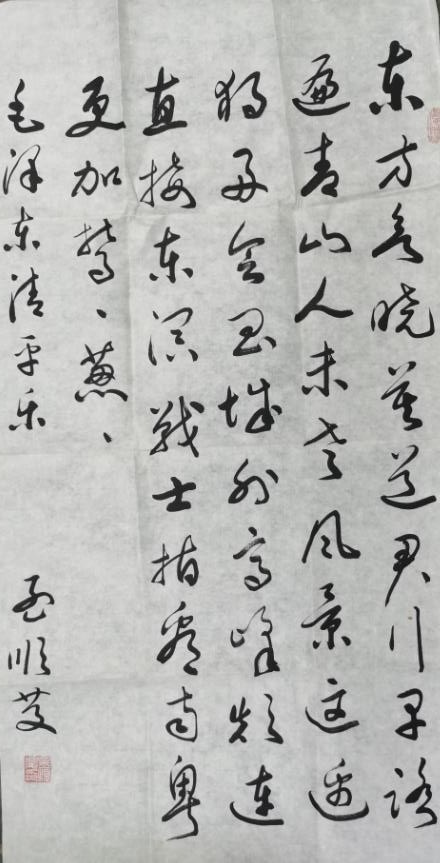 东方欲晓莫道君行早踏
遍青山人未老风景这边
独好会昌城外高峰颠连
直接东溟战士指看南粤
更加鬱、葱、
毛泽东清平乐
顺